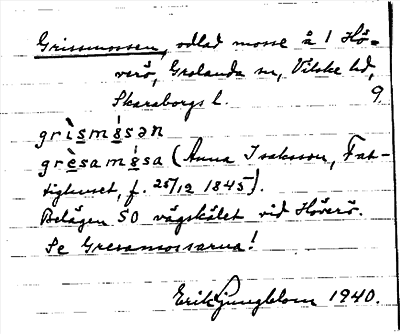 Grissmossen, odlad mosse å 1 Hö-
verö, Grolanda sn, Vilske hd,
Skaraborgs l. 9.
grìsmå̀sən
grèsamå̀sa (Anna Isaksson, Fat-
tighuset, f. 25/12 1845).
Belägen SO vägskälet vid Höverö.
Se Gresamossarna!
Erik Ljungblom 1940.